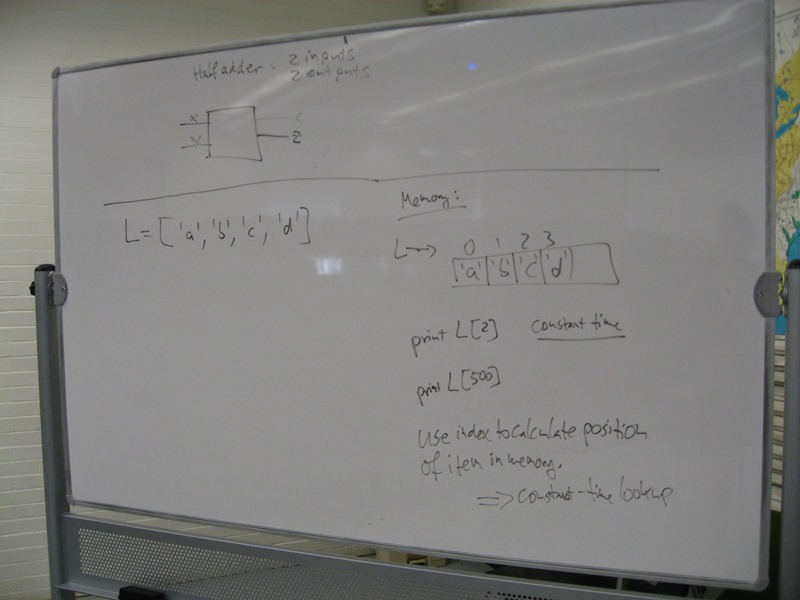 Half adder: 2 inputs
2 outputs
X
C
Y
Z
L = ['a', 'b', 'c', 'd']
Memory:
L → 0 1 2 3
'a' 'b' 'c' 'd'
print L[2] constant time
print L[500]
Use index to calculate position
of item in memory.
⇒ constant-time lookup